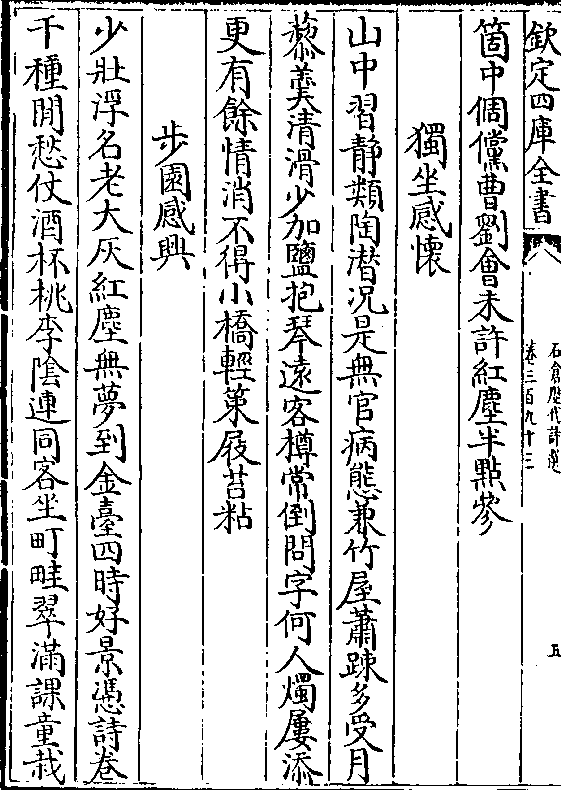 欽定四庫全書
石倉歷代詩選
卷三百九十三
五
箇中倜儻曹劉會未許紅塵半點參
獨坐感懷
山中習靜類陶潛況是無官病態兼竹屋蕭踈多受月
藜羹清滑少加鹽抱琴遠客樽常倒問字何人燭屢添
更有餘情消不得小橋輕策屐苔粘
步園感興
少壯浮名老大灰紅塵無夢到金臺四時好景憑詩卷
千種閒愁仗酒杯桃李陰連同客坐町畦翠滿課童栽